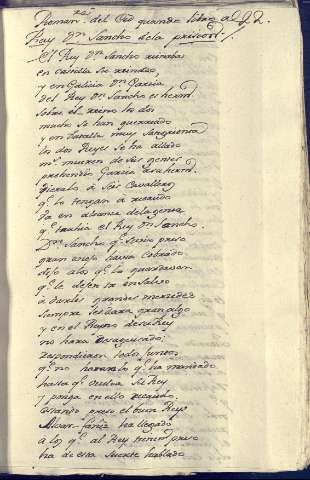 Roman.ce del Cid quando libró al
Rey Dn. Sancho de la prision.
El Rey Dn. Sancho reinaba
en Castilla su reinado,
y en Galicia Dn. Garcia
del Rey Dn. Sancho es herm.o
sobre el reino los dos
mucho se han guerreado
y en batalla muy sangrienta
los dos Reyes se ha allado
ms. mueren de sus gentes
prehendio Garcia a su herm.o
dieralo á seis Cavalleros
qe. lo tengan á recaudo
Va en alcance de la gente
qe. trahia el Rey Dn. Sancho.
Dn. Sancho qe. se vio preso
gran enojo havia cobrado
dijo a los qe. lo guardavan
qe. le dejen ir en salvo
á darles grandes mercedes
siempre les dara gran algo
y en el Reyno de su Rey
no hara desaguisado:
respondieron todos juntos
qe. no haran lo qe. ha mandado
hasta qe. vuelva su Rey
y ponga en ello recaudo.
estando preso el buen Rey
Alvar-fañez ha llegado
a los qe. al Rey tienen preso
ha de esta suerte hablado